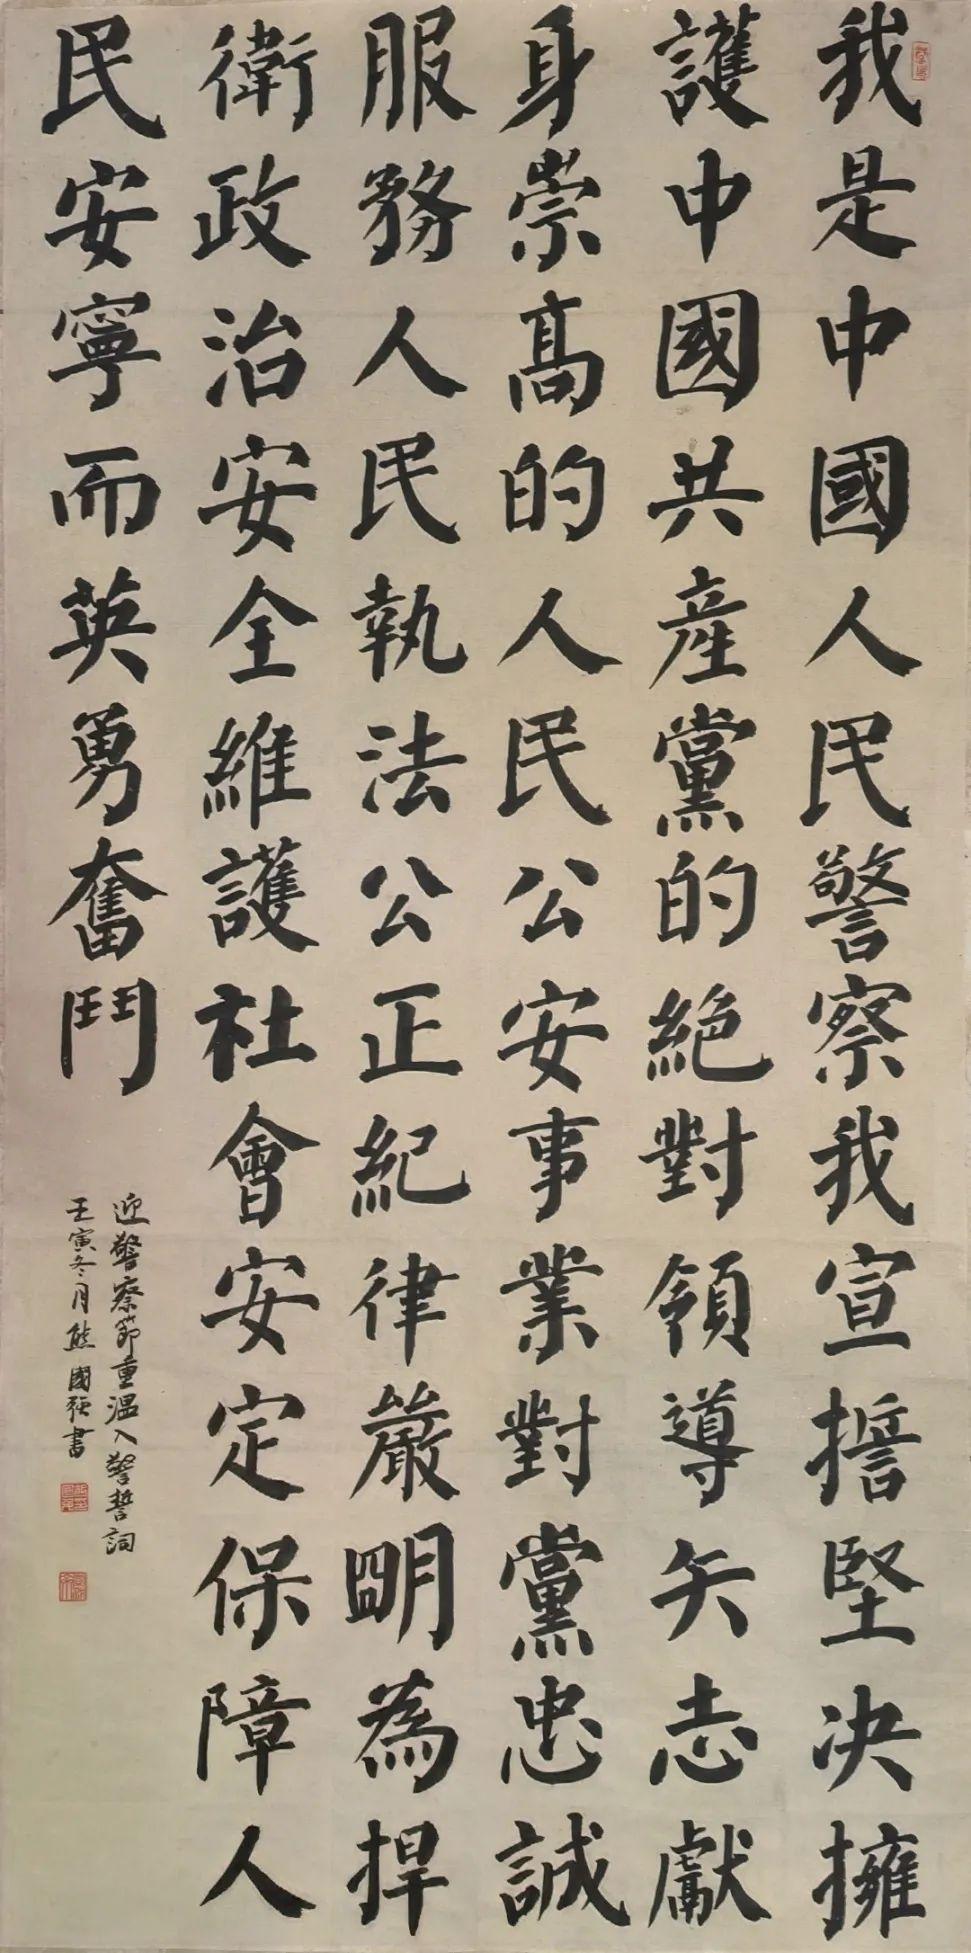 我是中國人民警察我宣擔堅决擁
護中國共産黨的絕對領導矢志獻
身崇髙的人民公安事業對黨忠誠
服務人民執法公正紀律嚴明為捍
衛政治安全維護社會安定保障人
民安寧而英勇奮鬥
迎警察節重温入警誓詞
壬寅冬月熊國强書